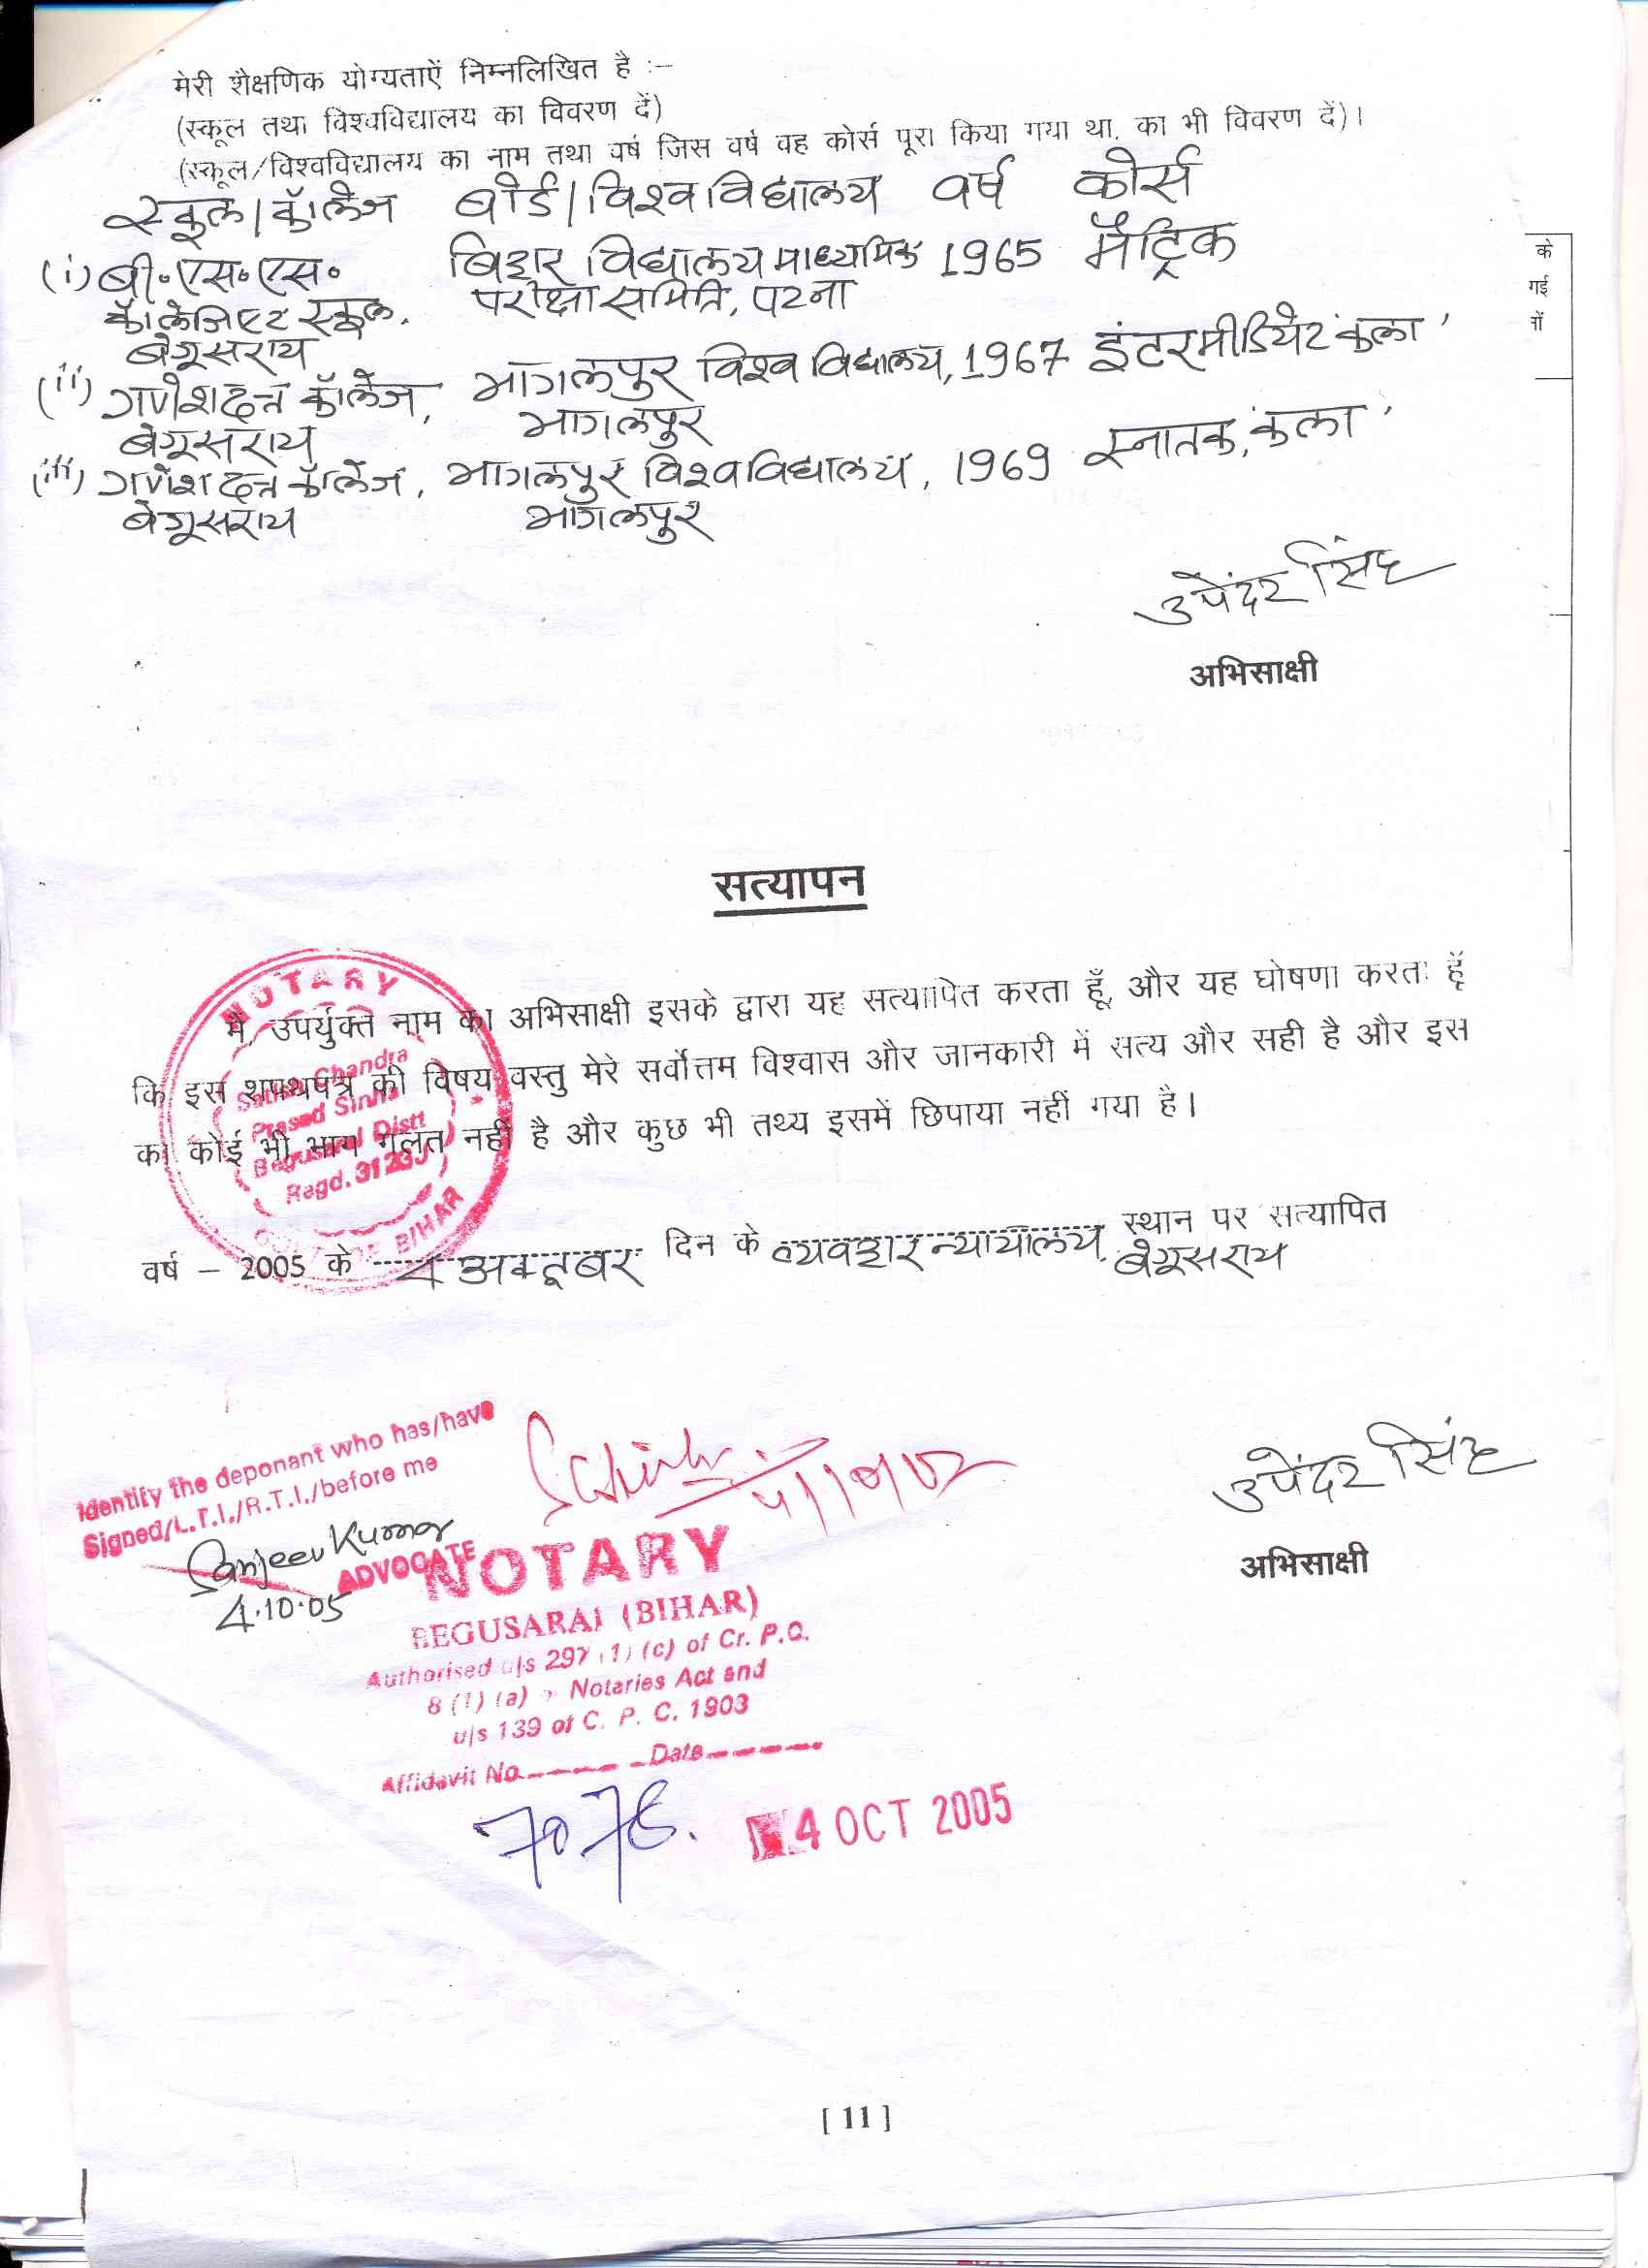 मेरी शैक्षणिक योग्यताऐं निम्नलिखित है :–
(स्कूल तथा विश्वविद्यालय का विवरण दें)
(स्कूल/विश्वविद्यालय का नाम तथा वर्ष जिस वर्ष वह कोर्स पूरा किया गया था, का भी विवरण दें)।
स्कूल/कॉलेज बोर्ड/विश्वविद्यालय वर्ष कोर्स
(i) बी॰एस॰एस॰ बिहार विद्यालय माध्यमिक 1965 मैट्रिक
कॉलेजिएट स्कूल, परीक्षा समिति, पटना
बेगूसराय
(ii) गणेशदत्त कॉलेज, भागलपुर विश्वविद्यालय, 1967 इंटरमीडियेट 'कला'
बेगूसराय भागलपुर
(iii) गणेशदत्त कॉलेज, भागलपुर विश्वविद्यालय, 1969 स्नातक, 'कला'
बेगूसराय भागलपुर
के
गई
गों
उपेंदर सिंह
अभिसाक्षी
सत्यापन
मैं, उपर्युक्त नाम का अभिसाक्षी इसके द्वारा यह सत्यापित करता हूँ, और यह घोषणा करता हूँ
कि इस शपथपत्र की विषय वस्तु मेरे सर्वोत्तम विश्वास और जानकारी में सत्य और सही है और इस
का कोई भी भाग गलत नहीं है और कुछ भी तथ्य इसमें छिपाया नहीं गया है।
NOTARY
Satish Chandra
Prasad Sinha
Begusarai Distt
Regd. 3123
BIHAR
वर्ष – 2005 के 4 अक्टूबर दिन के व्यवहार न्यायालय, बेगूसराय स्थान पर सत्यापित
Identify the deponant who has/have
Signed/L.T.I./R.T.I./before me
Sanjeev Kumar
ADVOCATE
4.10.05
4/10/05
NOTARY
BEGUSARAI (BIHAR)
Authorised u/s 297 (1) (c) of Cr. P.C.
8 (1) (a) Notaries Act and
u/s 139 of C. P. C. 1903
Affidavit No. Date
7078.
4 OCT 2005
उपेंदर सिंह
अभिसाक्षी
[ 11 ]